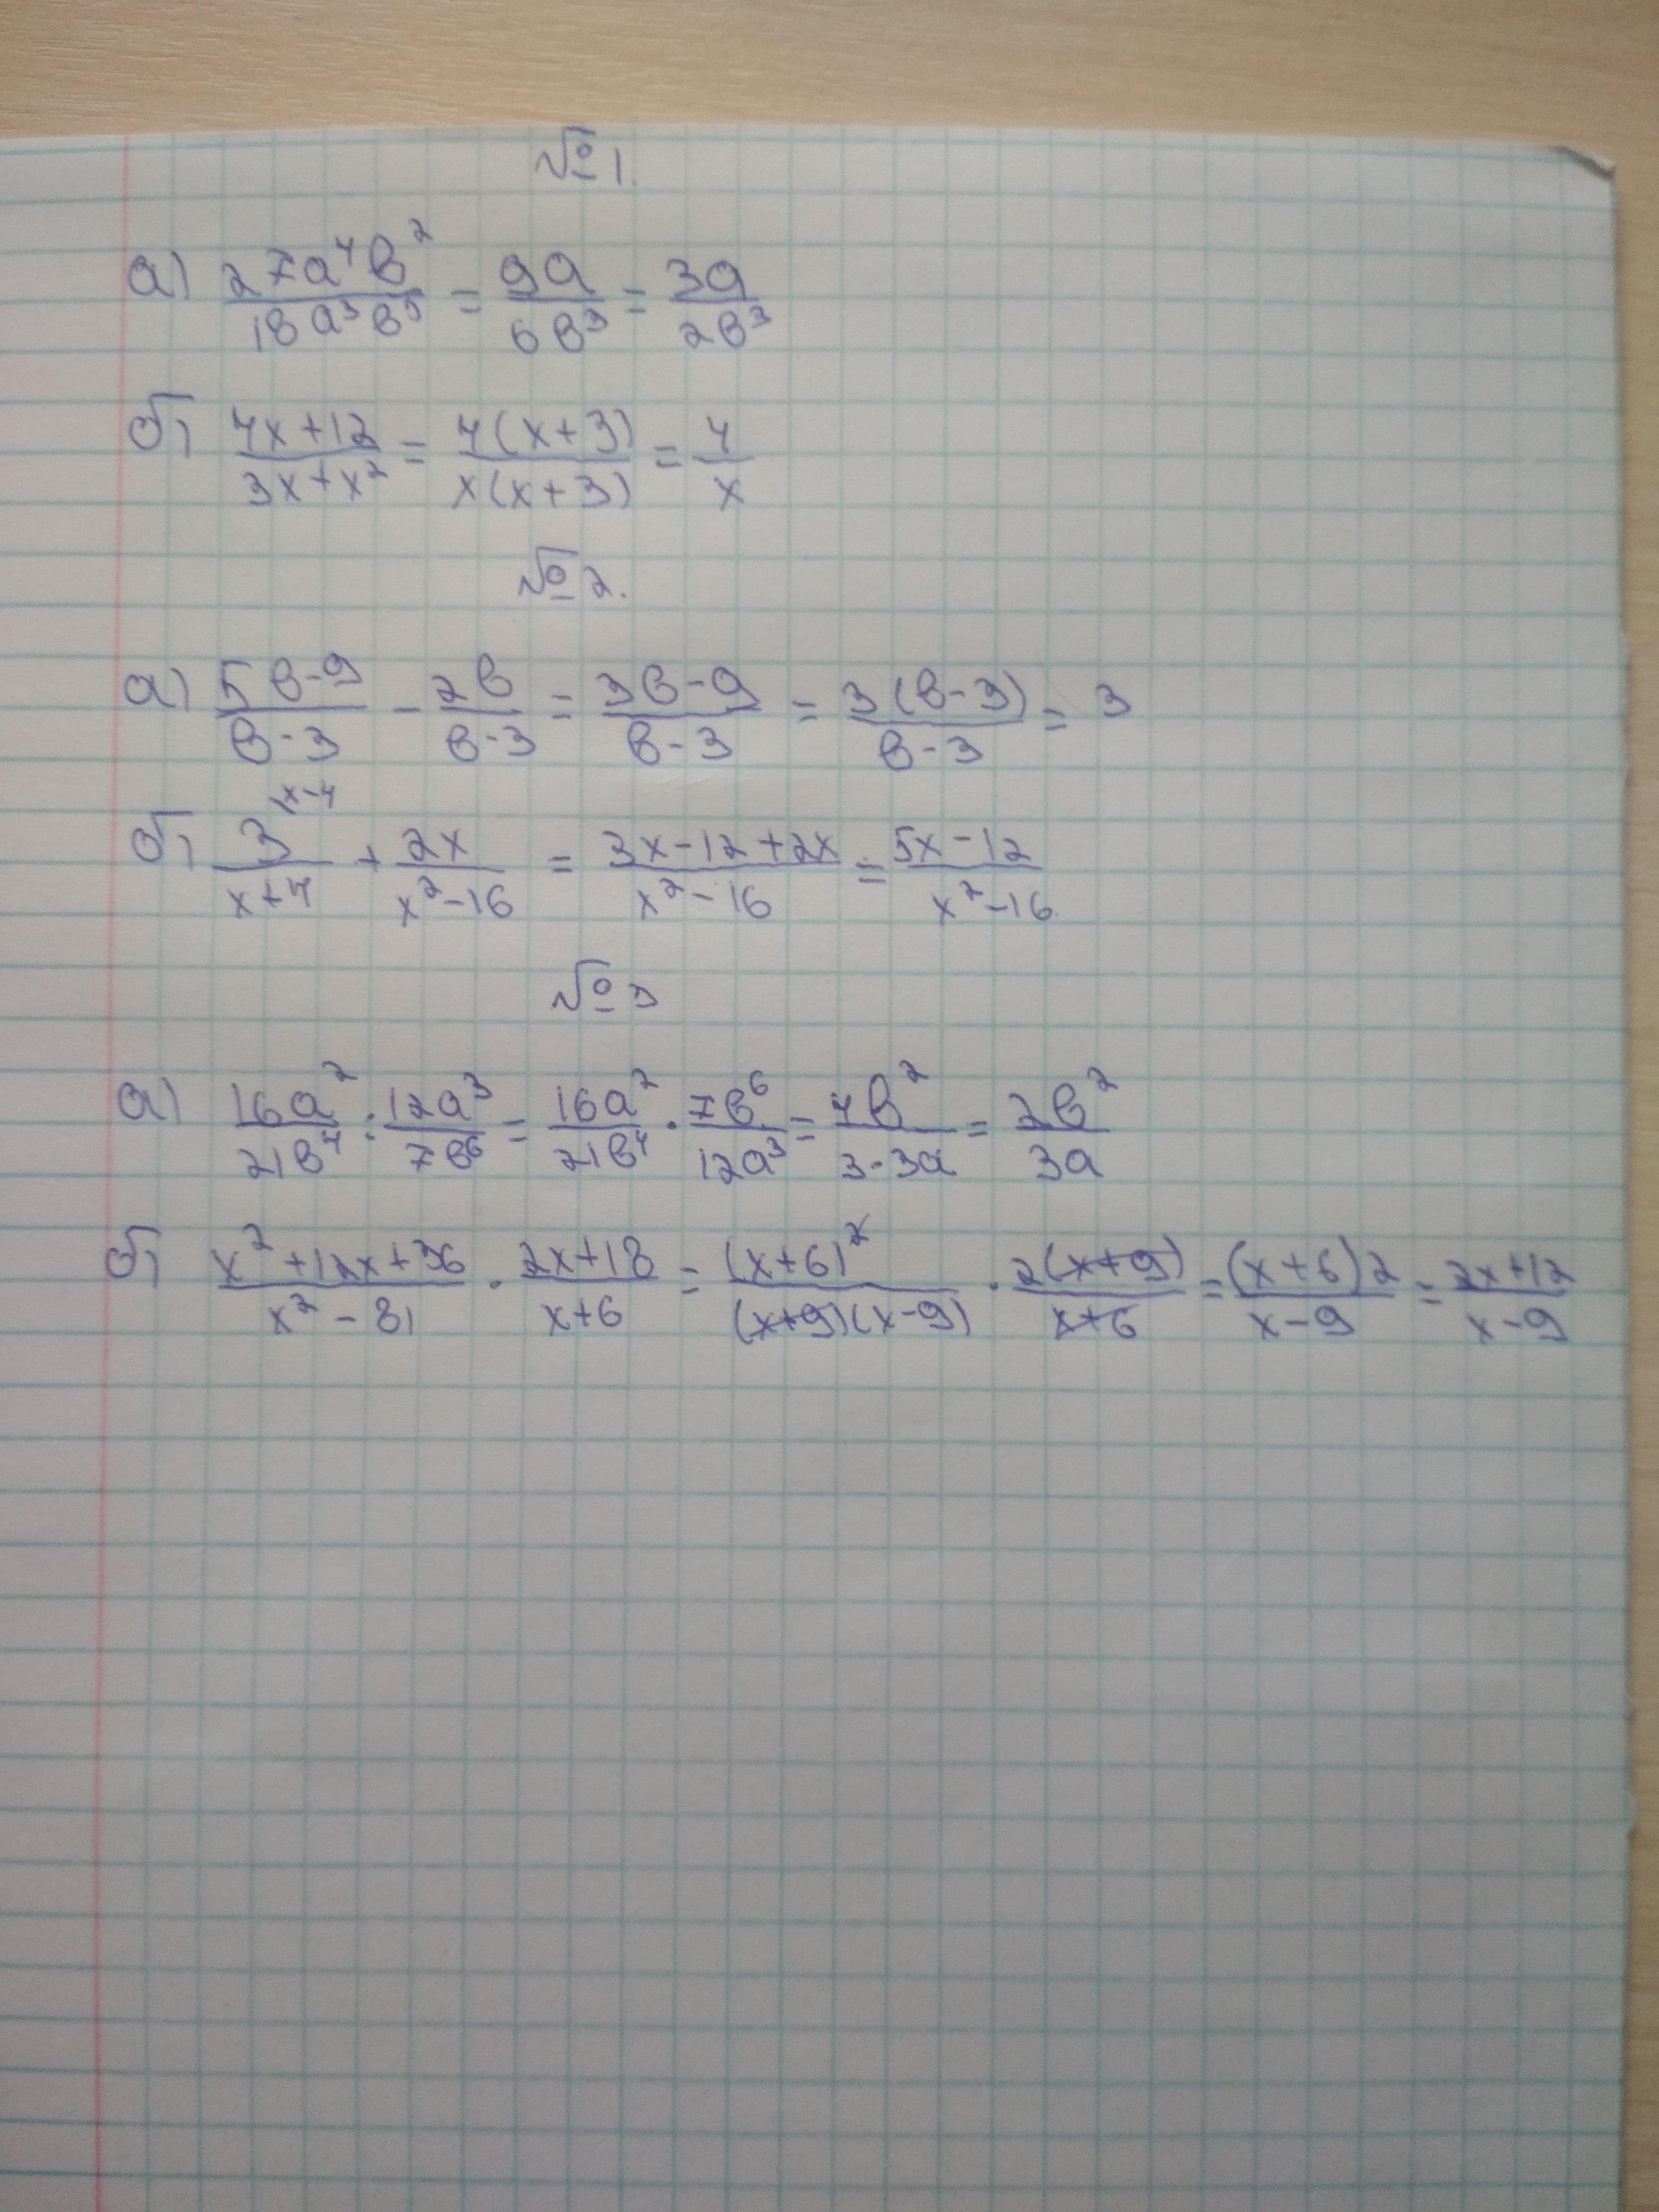 №1.
а) 27a⁴b²/18a³b⁵ = 9a/6b³ = 3a/2b³
б) 4x+12/3x+x² = 4(x+3)/x(x+3) = 4/x
№2.
а) 5b-9/b-3 - 2b/b-3 = 3b-9/b-3 = 3(b-3)/b-3 = 3
x-4
б) 3/x+4 + 2x/x²-16 = 3x-12+2x/x²-16 = 5x-12/x²-16
№3
а) 16a²/21b⁴ : 12a³/7b⁶ = 16a²/21b⁴ · 7b⁶/12a³ = 4b²/3·3a = 2b²/3a
б) x²+12x+36/x²-81 · 2x+18/x+6 = (x+6)²/(x+9)(x-9) · 2(x+9)/x+6 = (x+6)2/x-9 = 2x+12/x-9